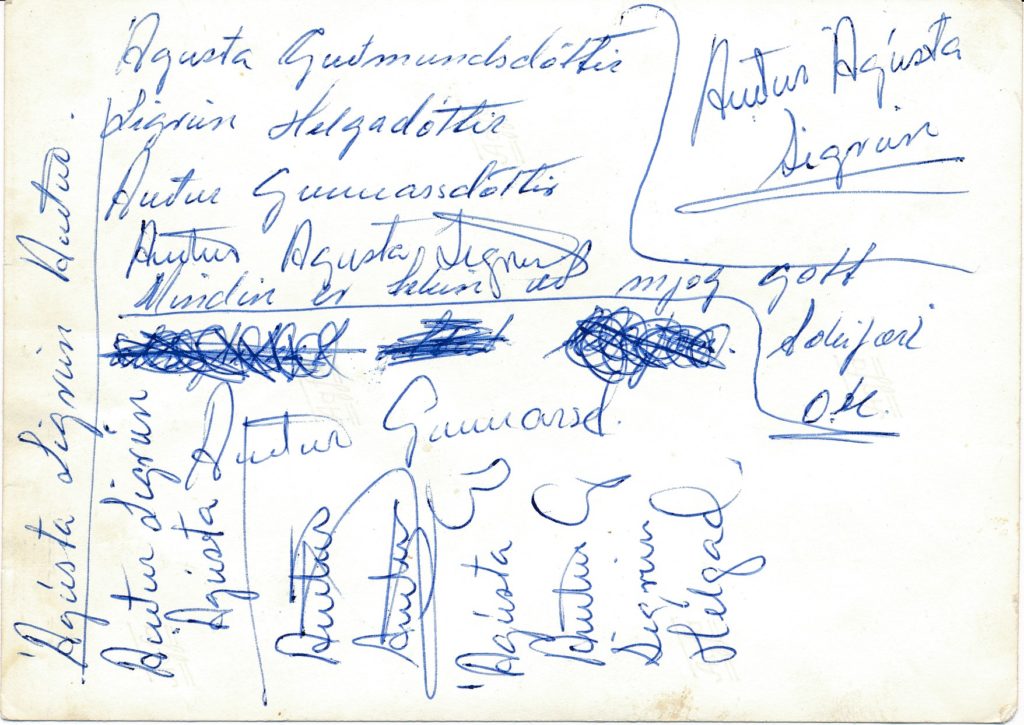 Ágústa Guðmundsdóttir
Sigrún Helgadóttir
Auður Gunnarsdóttir
Auður Ágústa Sigrún
Myndin er tekin við mjög gott
O.K.
Auður Ágústa
Sigrún
Auður Gunnarsd.
Ágústa Sigrún Auður.
Auður Sigrún
Ágústa
Auður
Auður
Ágústa G
Auður G
Sigrún
Helgad